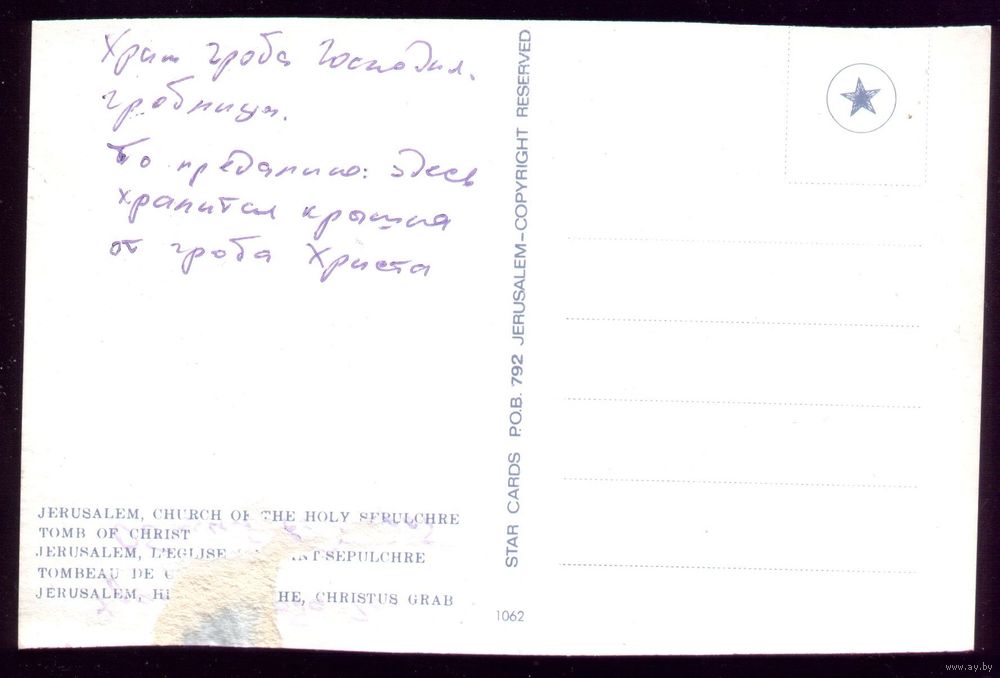 Храм гроба Господня.
гробница.
По преданию: здесь
хранится крышка
от гроба Христа
JERUSALEM, CHURCH OF THE HOLY SEPULCHRE
TOMB OF CHRIST
JERUSALEM, L'EGLISE SEPULCHRE
TOMBEAU DE
JERUSALEM, CHRISTUS GRAB
STAR CARDS P.O.B. 792 JERUSALEM-COPYRIGHT RESERVED
1062
www.ay.by